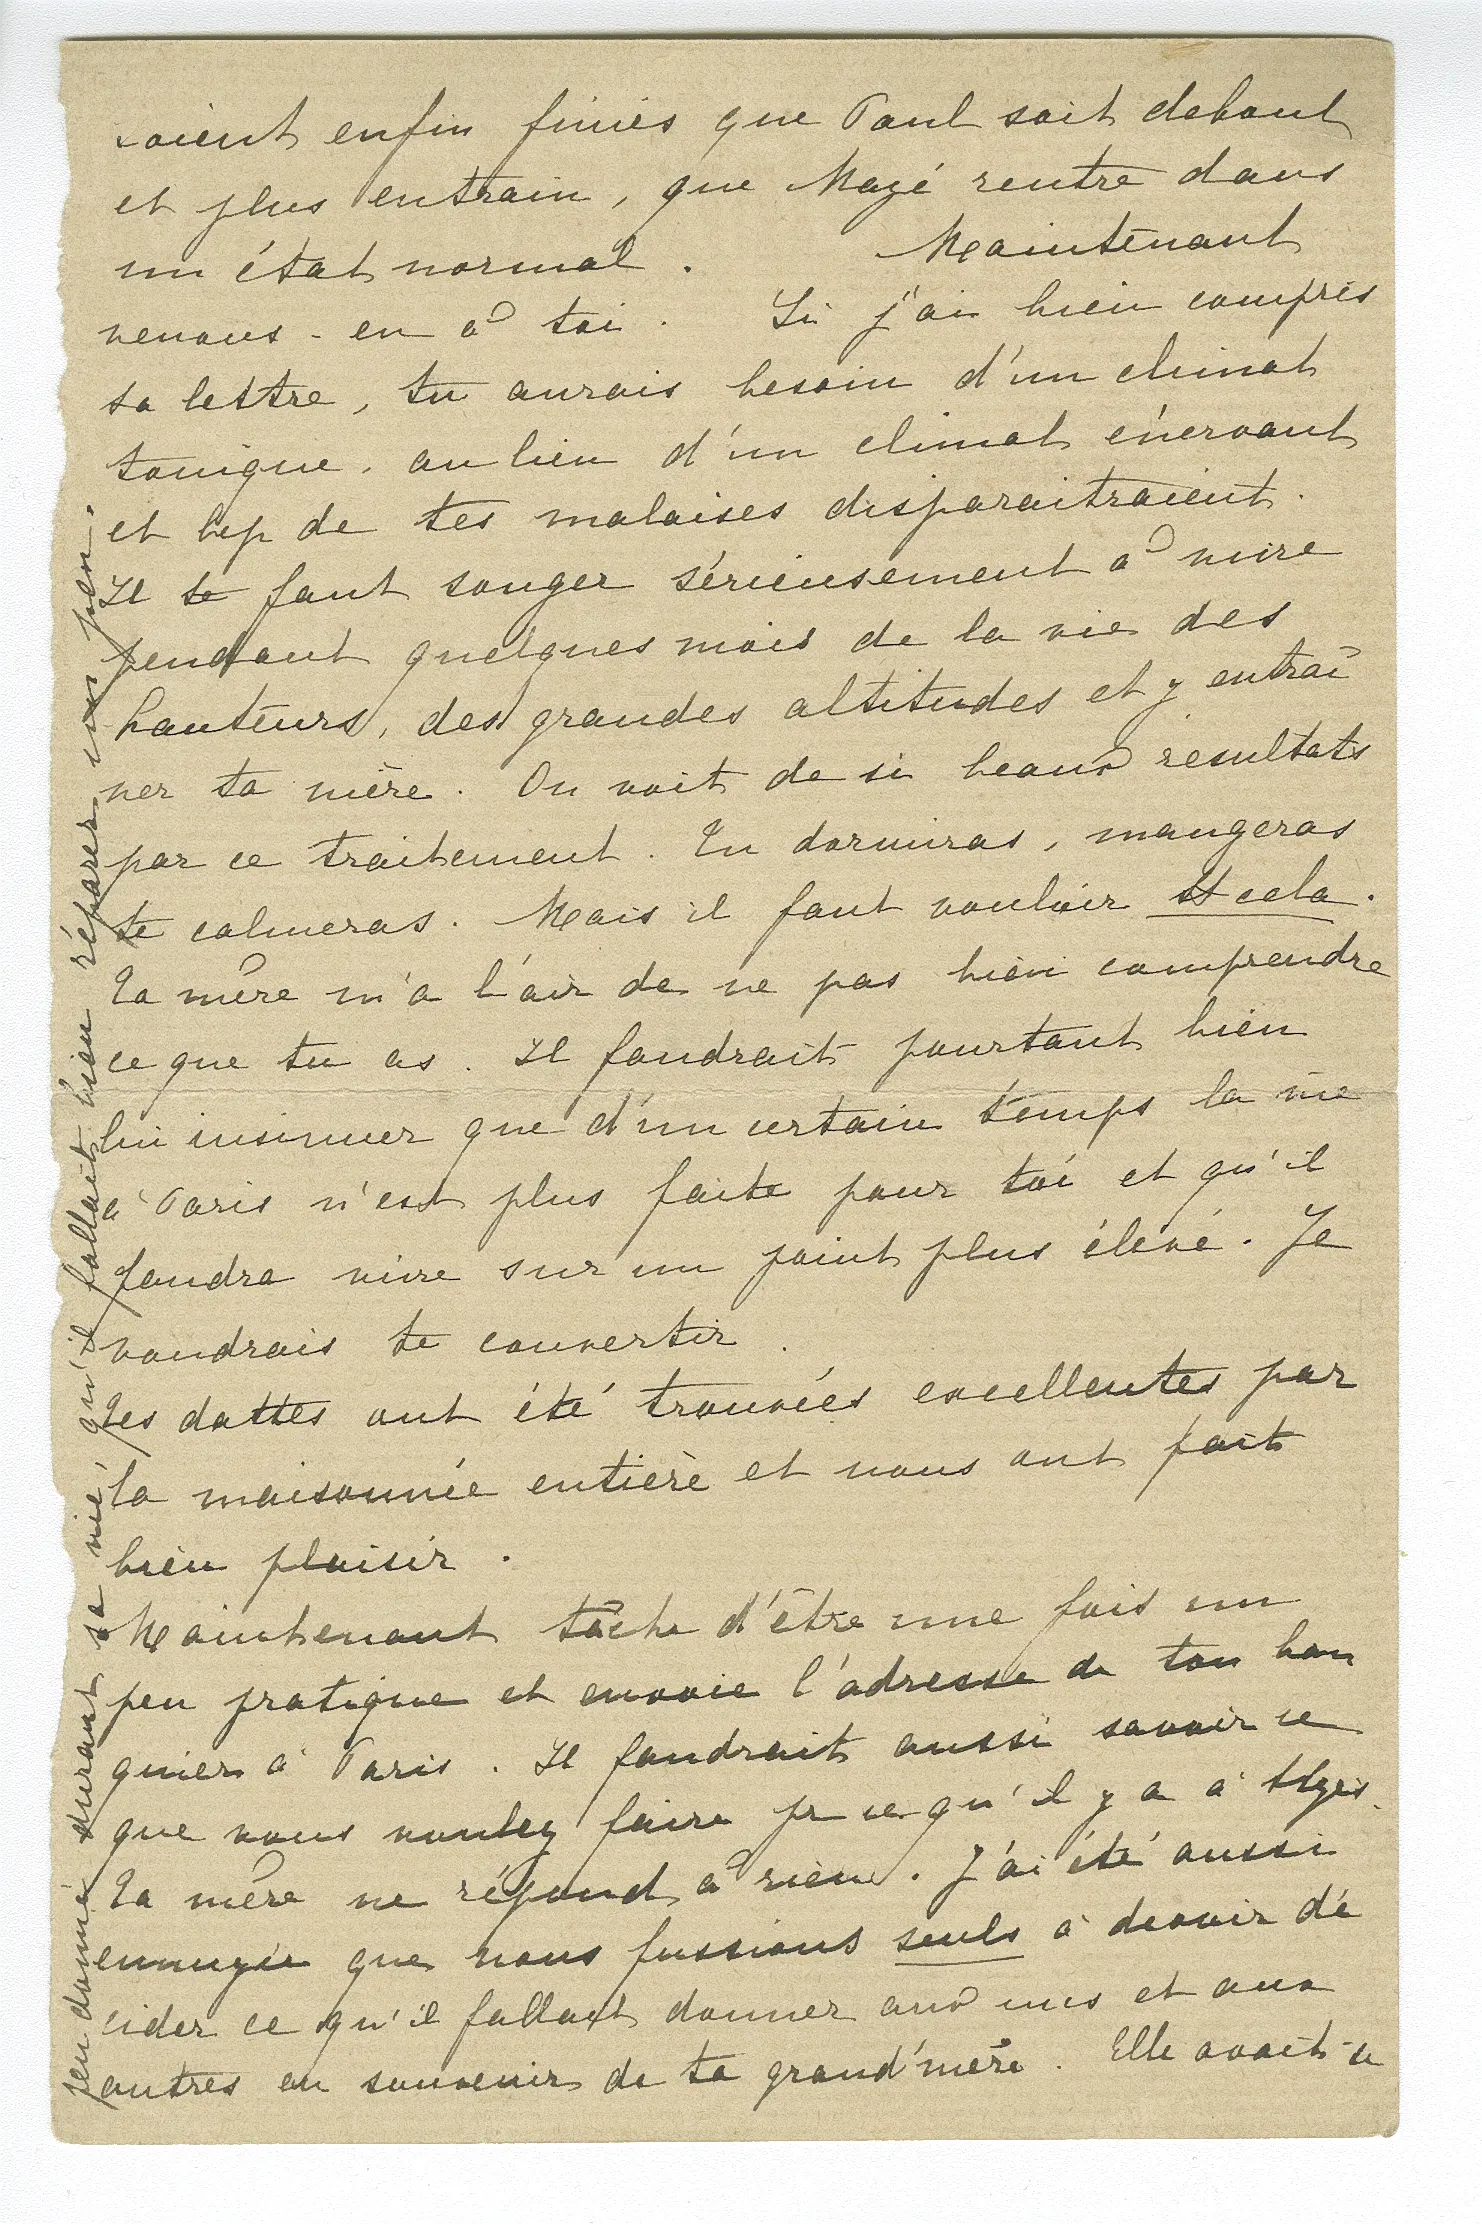 soient enfin finies que Paul soit debout
et plus entrain, que Mazé rentre dans
un état normal. Maintenant
venons-en à toi. Si j'ai bien compris
ta lettre, tu aurais besoin d'un climat
tonique, au lieu d'un climat énervant
et bcp de tes malaises disparaitraient.
Il te faut songer sérieusement à vivre
pendant quelques mois de la vie des
hauteurs, des grandes altitudes et y entraî
ner ta mère. On voit de si beaux résultats
par ce traitement. Tu dormiras, mangeras
te calmeras. Mais il faut vouloir cela.
Ta mère m'a l'air de ne pas bien comprendre
ce que tu as. Il faudrait pourtant bien
lui insinuer que d'un certain temps la vie
à Paris n'est plus faite pour toi et qu'il
faudra vivre sur un point plus élevé. Je
voudrais te convertir.
Tes dattes ont été trouvées excellentes par
la maisonnée entière et nous ont fait
bien plaisir.
Maintenant tâche d'être une fois un
peu pratique et envoie l'adresse de ton ban
quier à Paris. Il faudrait aussi savoir ce
que vous voulez faire pr ce qu'il y a à
Ta mère ne répond à rien. J'ai été aussi
ennuyée que nous fussions seuls à devoir dé
cider ce qu'il fallait donner aux uns et aux
autres en souvenir de ta grand'mère. Elle avait si
peu donné durant sa vie, qu'il fallait bien réparer un peu.